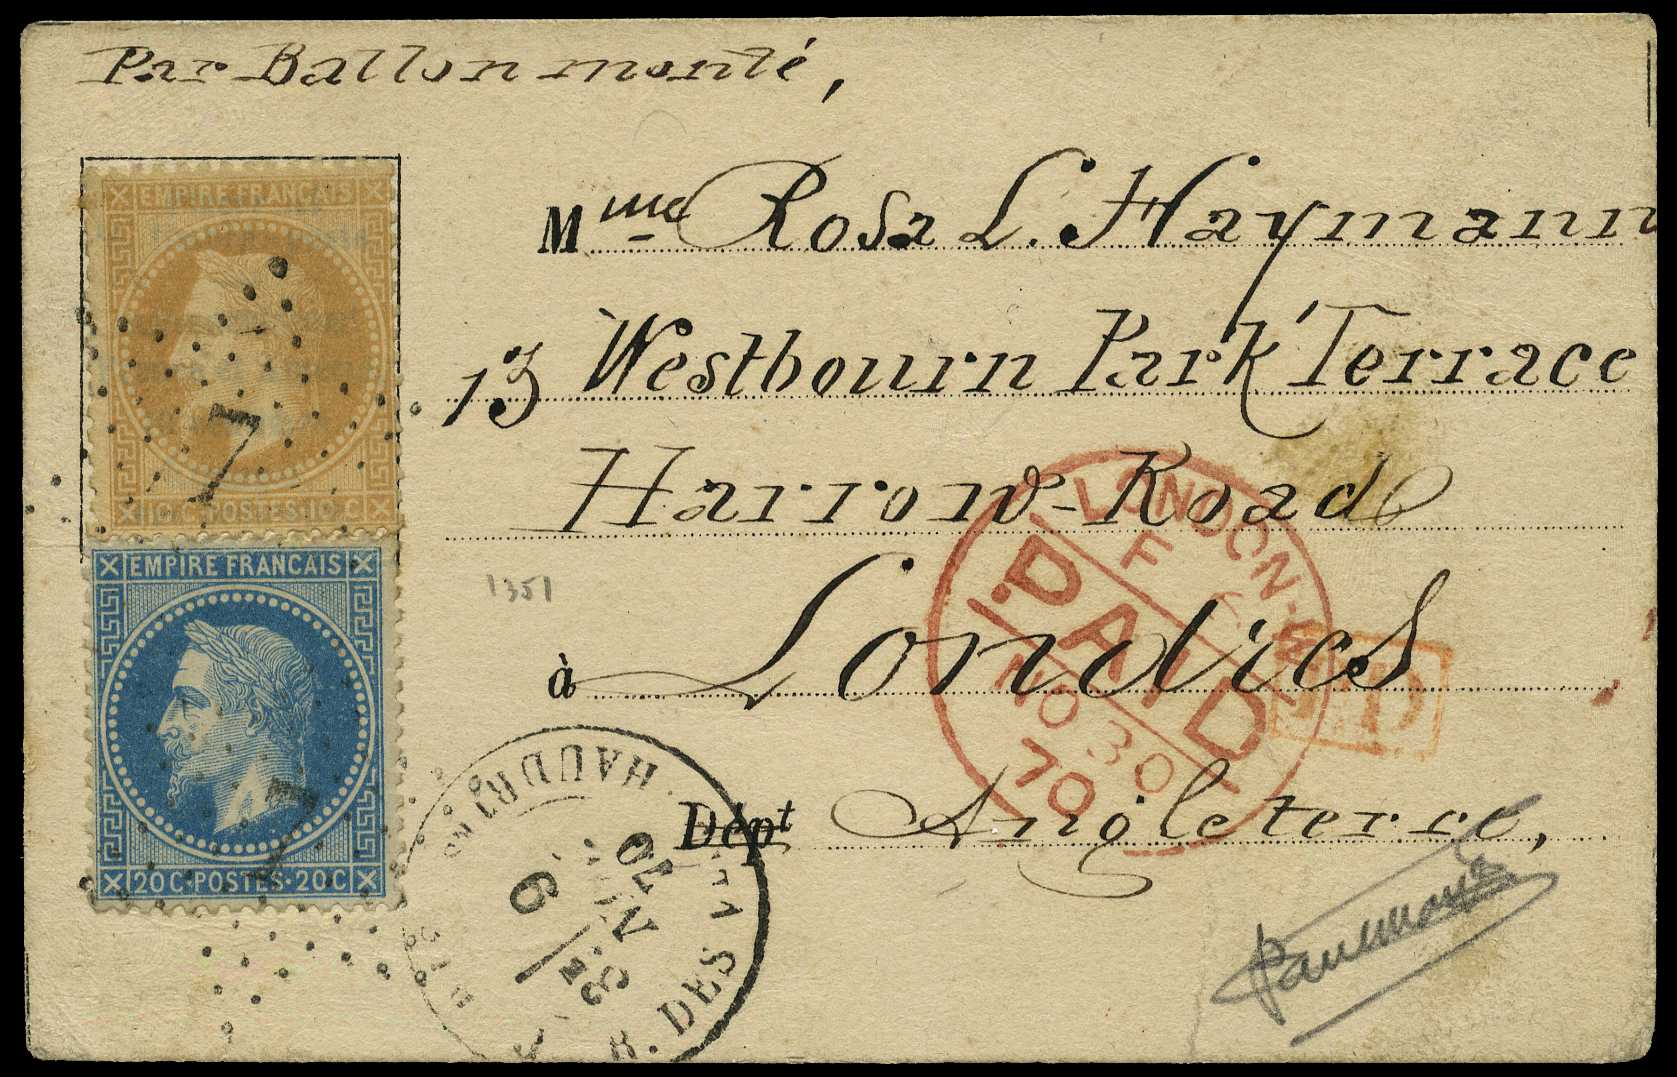 Par Ballon monté,
EMPIRE FRANÇAIS
10 C. POSTES. 10 C
7
EMPIRE FRANÇAIS
20C. POSTES. 20C
7
Mme Rosa L. Haymann
13 Westbourn Park Terrace
Harrow-Road
1351
à Londres
Dépt Angleterre,
LONDON-W
F
PAID
NO 30
70
PD
R. DES
HAUDR
6
70